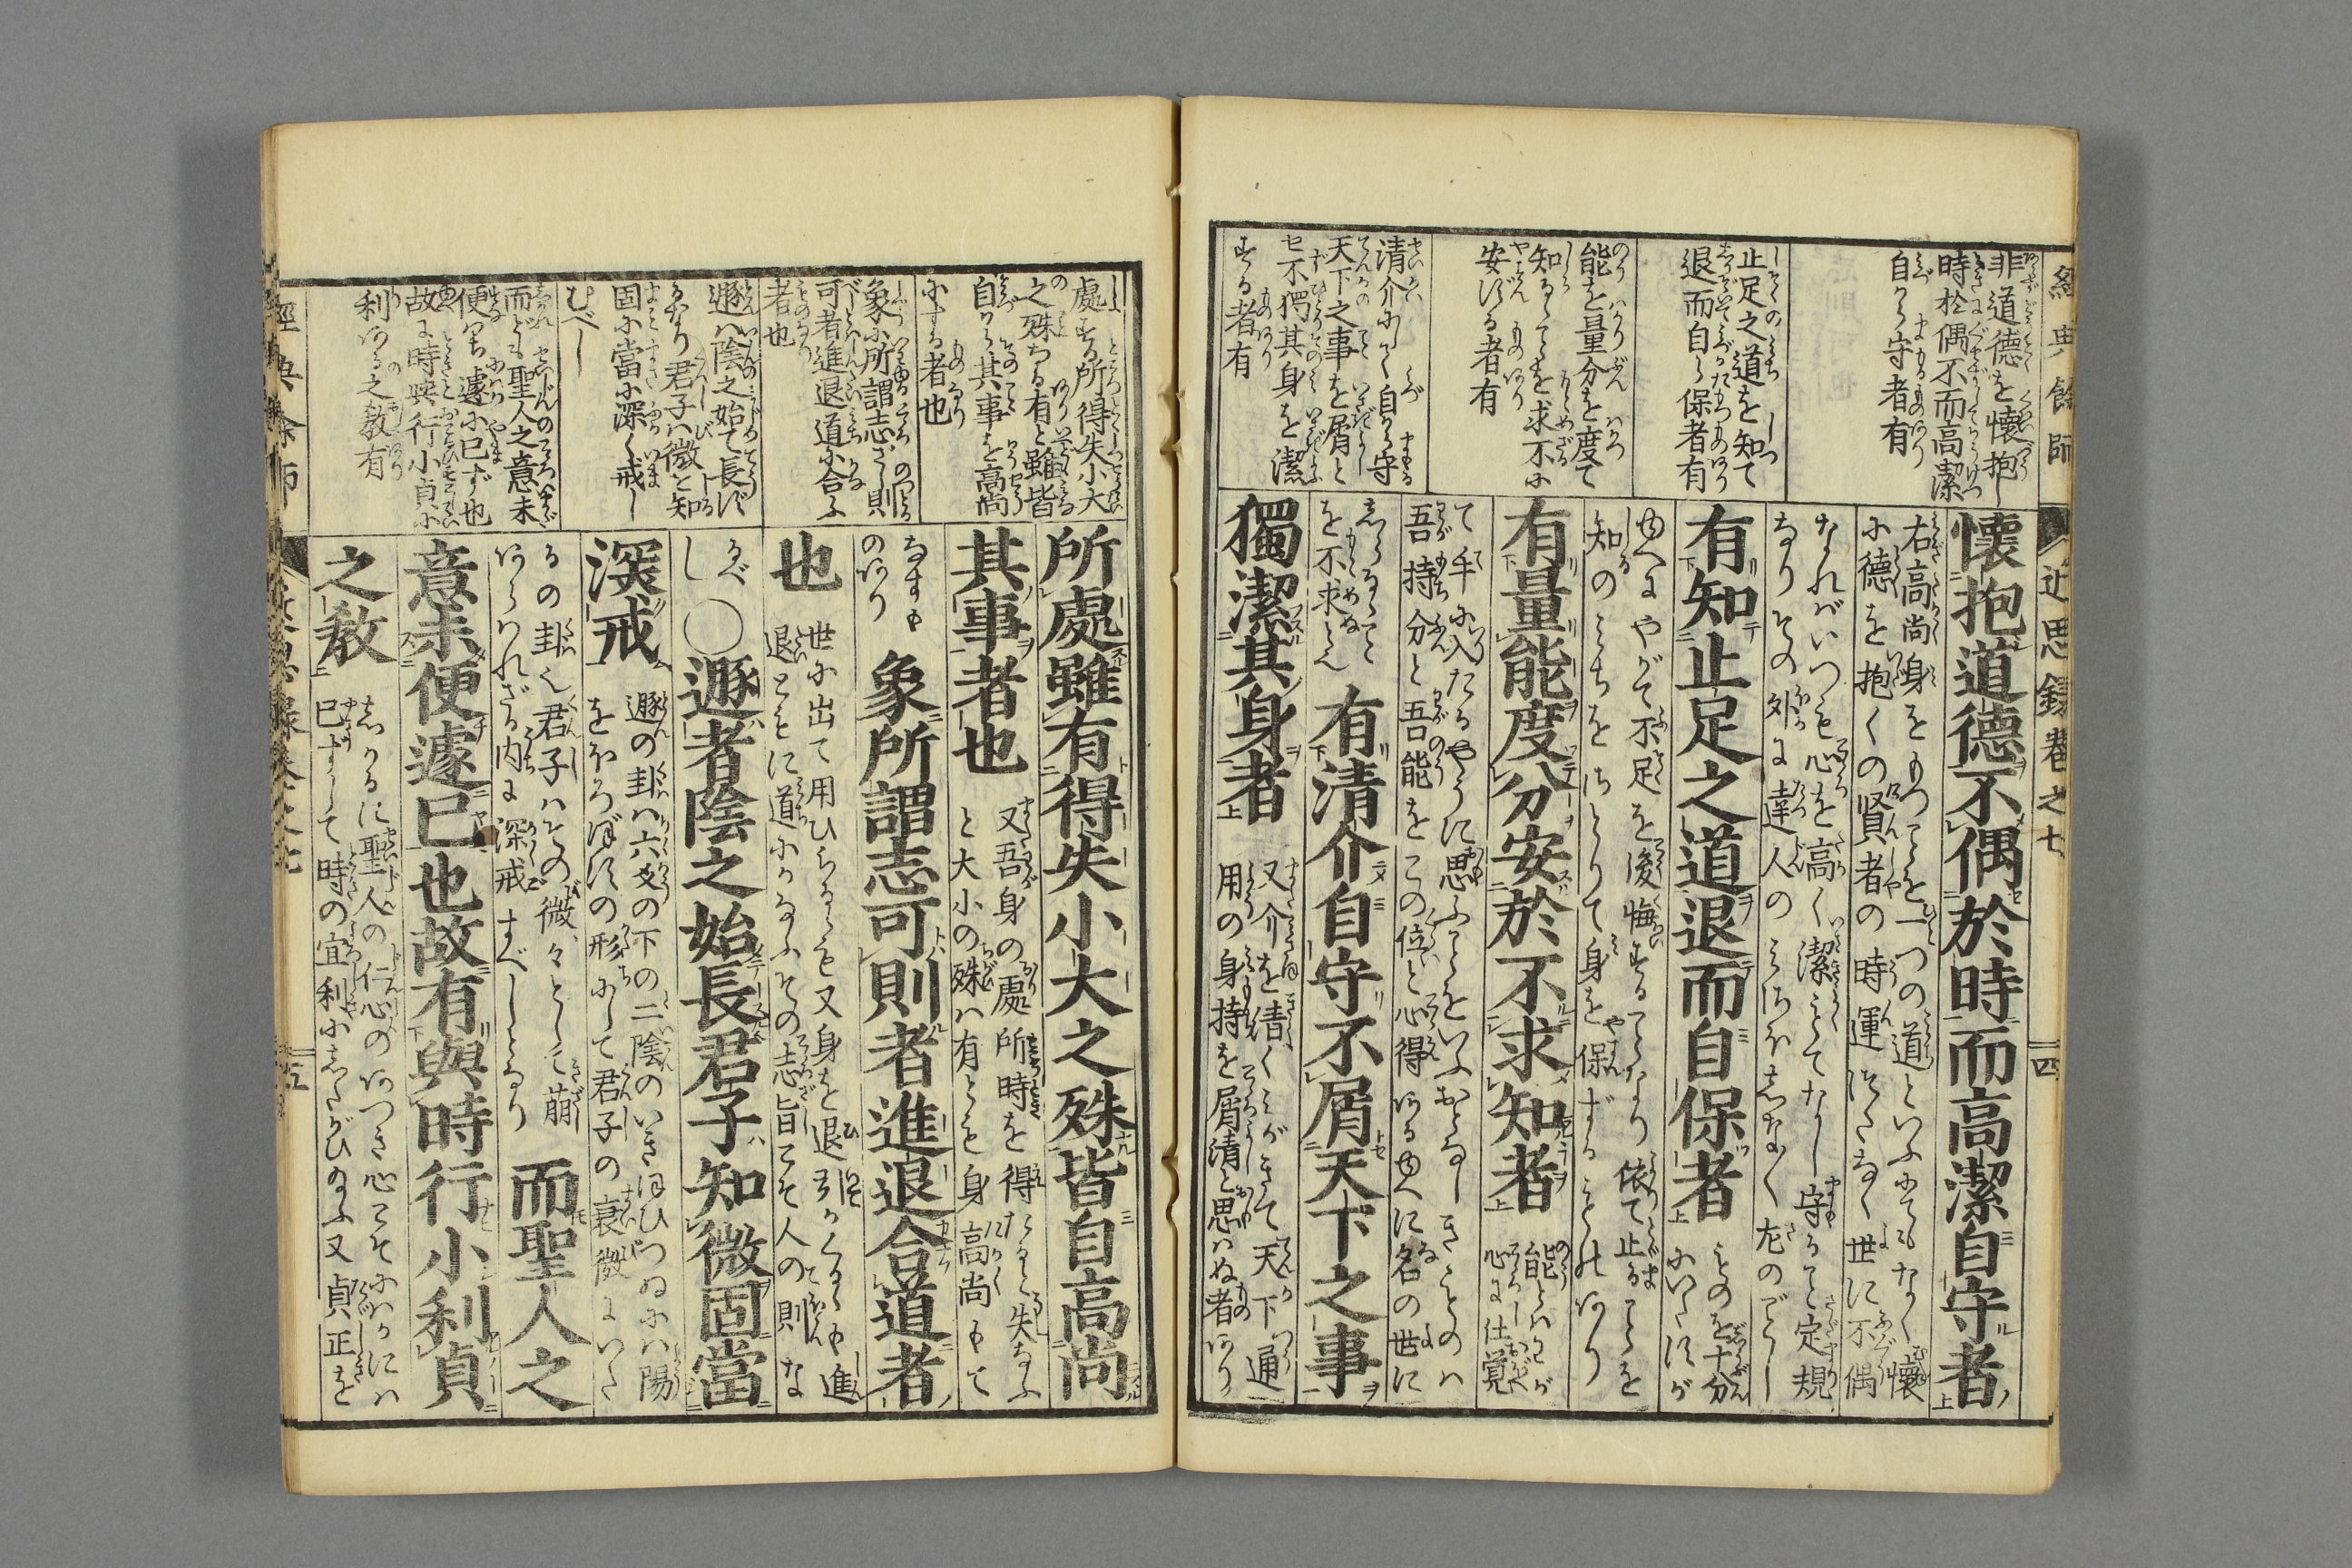 經典餘師
近思録卷之七
四
非道德を懷抱し
時於偶不而高潔
自ら守者有
止足之道を知て
退而自ら保者有
能を量分を度て
知るゝを求不に
安ずる者有
清介にして自ら守
天下之事を屑と
セ不獨其身を潔
する者有
懷抱道德不偶於時而高潔自守者
右高尚身をもつことを一つの道といふにてもなく懷
に德を抱くの賢者の時運つたなく世に不偶
なればいつも心を高く潔くしてなし守ると定規
なりその外に達人のみちにあなく左のごとし
有知止足之道退而自保者
ものを十分
にいたすが
ゆへにやがて不足を後悔することなり依て止ることを
知のみちをさとりて身を保ずることもあり
有量能度分安於不求知者
能とはわが
心に仕覚
て手に入たるやうに思ふことをいふおとなしきことのは
吾持分と吾能をこの位と心得あるゆへに名の世に
しらるゝこと
を不求となん
有清介自守不屑天下之事
獨潔其身者
又介を結くみがきて天下通
用の身持を屑清と思はぬ者あり
處する所得失小大
之殊なる有と雖皆
自ら其事を高尚
にする者也
象に所謂志ざし則
可者進退道に合ふ
者也
遯は陰之始て長ず
るなり君子は微を知
固に當に深く戒し
むべし
而ども聖人之意未
便ち遽に已ず也
故に時與行小貞に
利ある之教有
所處雖有得失小大之殊皆自高尚
其事者也
又吾身の處所時を得たると失なふ
と大小の殊は有とも身高尚もて
なすも
のあり
象所謂志可則者進退合道者
也
世に出て用ひらるゝも又身を退引くるも進
退ともに道にかなふその志旨こそ人の則な
るべ
し
〇遯者陰之始長君子知微固當
深戒
遯の卦は六爻の下の二陰のいきほひつゐには陽
をほろぼすの形にして君子の衰微にいた
るの卦也君子はその微々として崩
あらはれざる内に深戒すべしとなり
而聖人之
意未便遽已也故有與時行小利貞
之教
しかるに聖人の仁心のあつき心こそにはかには
已ずして時の宜利にしたがひ給ふ又貞正を
經典余師
五